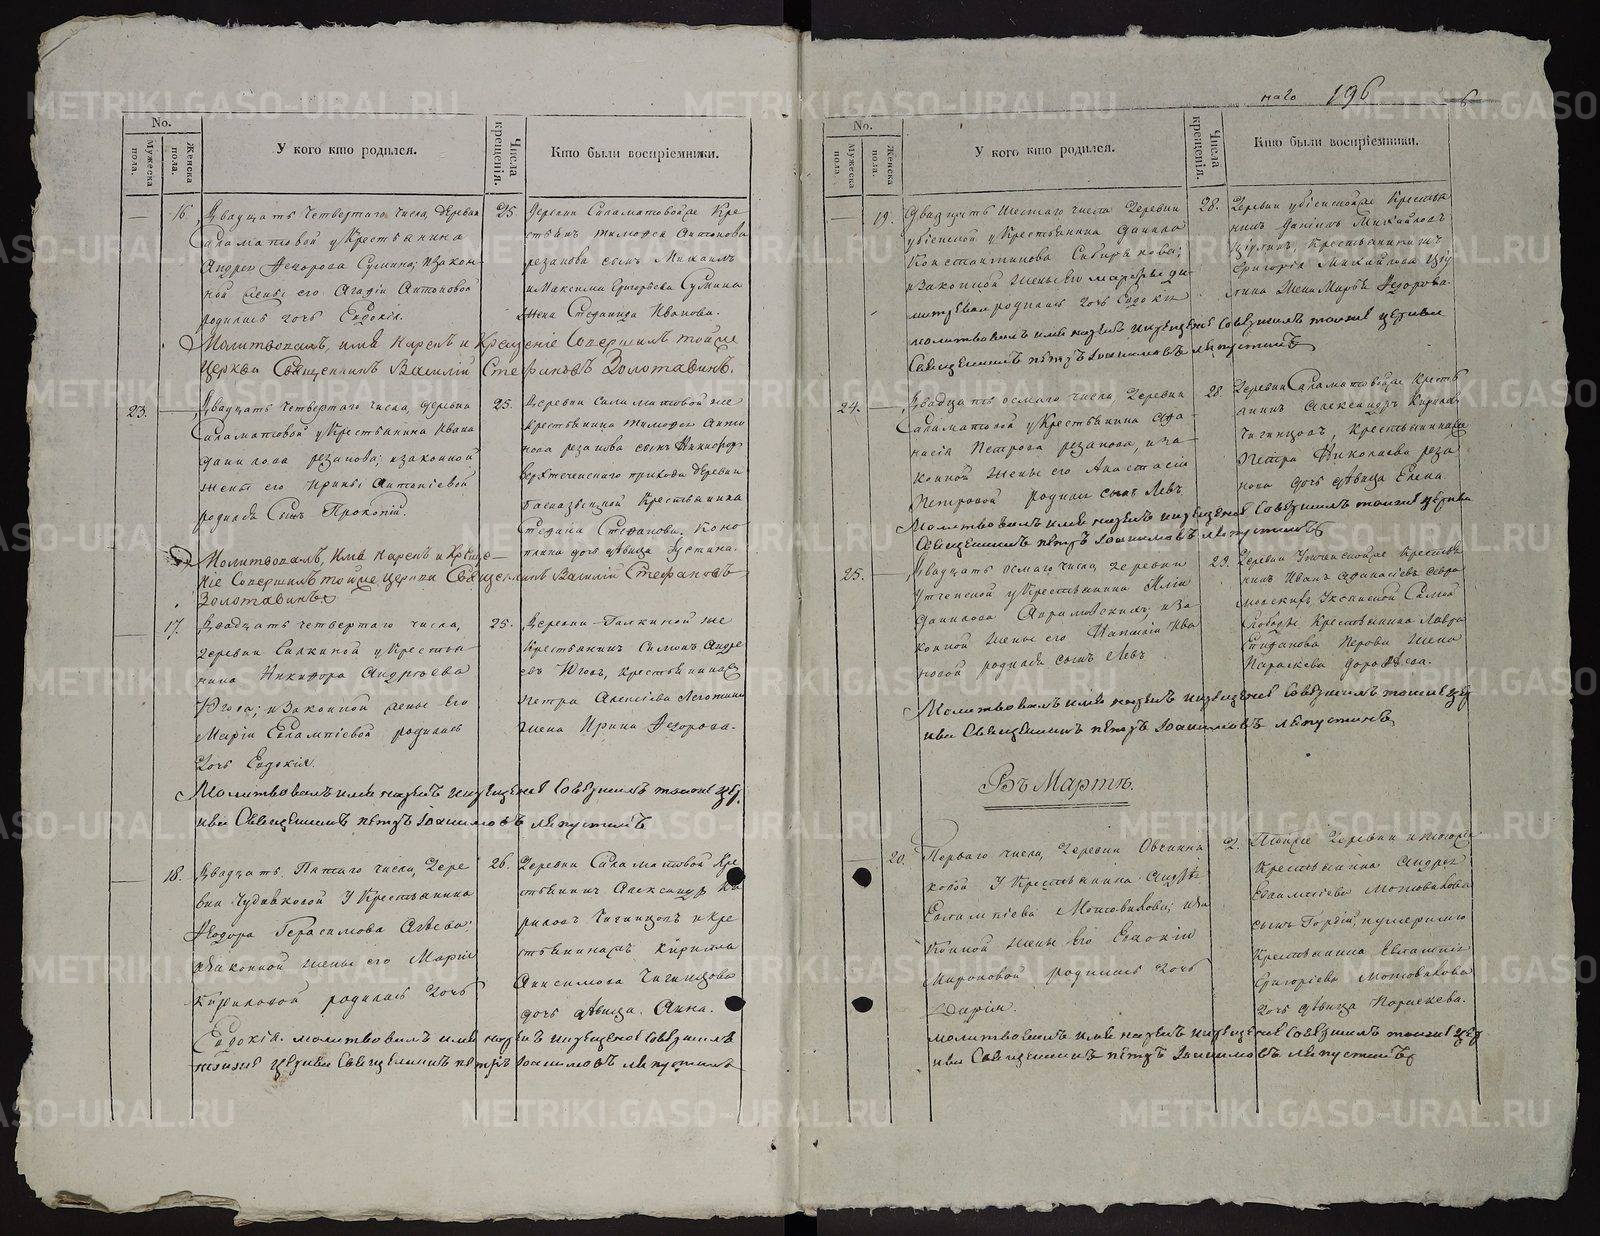 No.
Мужеска пола.
Женска пола.
У кого кто родился.
Числа крещенія.
Кто были воспріемники.
16
Двадцать четвертаго числа, деревни
Саламатовой у Крестьянина
Андрея Федорова Сумина; и закон-
ной жены его Агафіи Антоновой
родилась дочь Евдокія.
25.
Деревни Саламатовой же Кре
стьянъ Тимофея Антонова
резанова сынъ Михаилъ
и Максима Григорьева Сумина
жена Степанида Иванова.
Молитвовалъ, имя нарекъ и Крещеніе Совершилъ той же
церкви Священникъ Василій Стефановъ Золотавинъ.
23.
Двадцать четвертаго числа, деревни
Саламатовой у Крестьянина Ивана
Данилова резанова; и законной
жены его Ирины Антоніевой
родился Сынъ Прокопій.
25.
Деревни Саламатовой же
Крестьянина Тимофея Анто
нова резанова сынъ Никифоръ
верхтеченскаго прихода деревни
Крестьянина
Стефана Стефанова Коно
плина дочь девица Устина.
Молитвовалъ, Имя нарекъ и Креще-
ніе Совершилъ той же Церкви Священникъ Василій Стефановъ
Золотавинъ
17.
Двадцать четвертаго числа,
деревни Галкиной у Крестья-
нина Никифора Андреева
Югова; и Законной жены Его
Маріи Евлампіевой родилась
дочь Евдокія.
25.
Деревни Галкиной же
Крестьянинъ Симонъ Андре
евъ Юговъ, Крестьянина
Петра Алексіева
жена Ирина Федорова.
Молитвовалъ имя нарекъ и крещеніе Совершилъ тоя же цер
кви Священникъ Петръ Іоакимовъ Ляпустинъ
18.
Двадцать Пятаго числа, Дере
вни Чудавковой У Крестьянина
Феодора Герасимова
и Законной жены его Маріи
Кириловой родилась дочь
Евдокія.
26.
Деревни Саламатовой Кре
стьянинъ Александръ Ки
риловъ Чигинцовъ и кре
стьянина Кирилла
Анисимова Чигинцова
дочь девица. Анна.
молитвовалъ имя нарекъ и крещеніе совершилъ
тоя же церкви Священникъ Петръ Іоакимовъ Ляпустинъ
196
No.
Мужеска пола.
Женска пола.
У кого кто родился.
Числа крещенія.
Кто были воспріемники.
19.
Двадцать шестаго числа Деревни
убіенной у Крестьянина Данила
Константинова Сибирякова;
и Законной жены Его Марфы Ди-
митріевой родилась дочь Евдокія
28.
Деревни убіенной же Крестья
нинъ Данилъ Михайловъ
Крестьянина
Григорія Михайлова
жена Марфа Федорова.
молитвовалъ имя нарекъ и крещеніе Совершилъ тоя же церкви
Священникъ Петръ Іоакимовъ Ляпустинъ
24.
Двадцать осмаго числа, Деревни
Саламатовой у Крестьянина Афа-
насія Петрова резанова, и за-
конной жены его Анастасіи
Петровой родился сынъ Левъ.
28.
Деревни Саламатовой же Кресть
янинъ Александръ Кирила
Чигинцовъ, Крестьянина
Петра Николаева реза
нова дочь девица Елена.
Молитвовалъ имя нарекъ и крещеніе Совершилъ тоя же церкви
Священникъ Петръ Іоакимовъ Ляпустинъ
25.
Двадцать осмаго числа, деревни
Утченской у Крестьянина Иліи
Данилова и За
конной жены его Ива
новой родился сынъ Левъ
29.
Деревни Утченской же Крестья
нинъ Иванъ Афанасіевъ
Самой
Слободы Крестьянина Лавра
Стефанова Перова жена
Параскева Дорофеева.
Молитвовалъ имя нарекъ и крещеніе Совершилъ тоя же цер
кви Священникъ Петръ Іоакимовъ Ляпустинъ
Въ Мартѣ.
20.
Перваго числа, Деревни Овчинни
ковой У Крестьянина Андрея
Евлампіева Мотовилова; и за
конной жены Его Евдокіи
Мироновой родилась дочь
Дарія.
2.
Деревни
Крестьянина Андрея
Евлампіева Мотовилова
сынъ Гордій;
Крестьянина Евлампія
Григоріева Мотовилова
дочь девица Параскева.
молитвовалъ имя нарекъ и крещеніе Совершилъ тоя же цер
кви Священникъ Петръ Іоакимовъ Ляпустинъ
METRIKI.GASO-URAL.RU